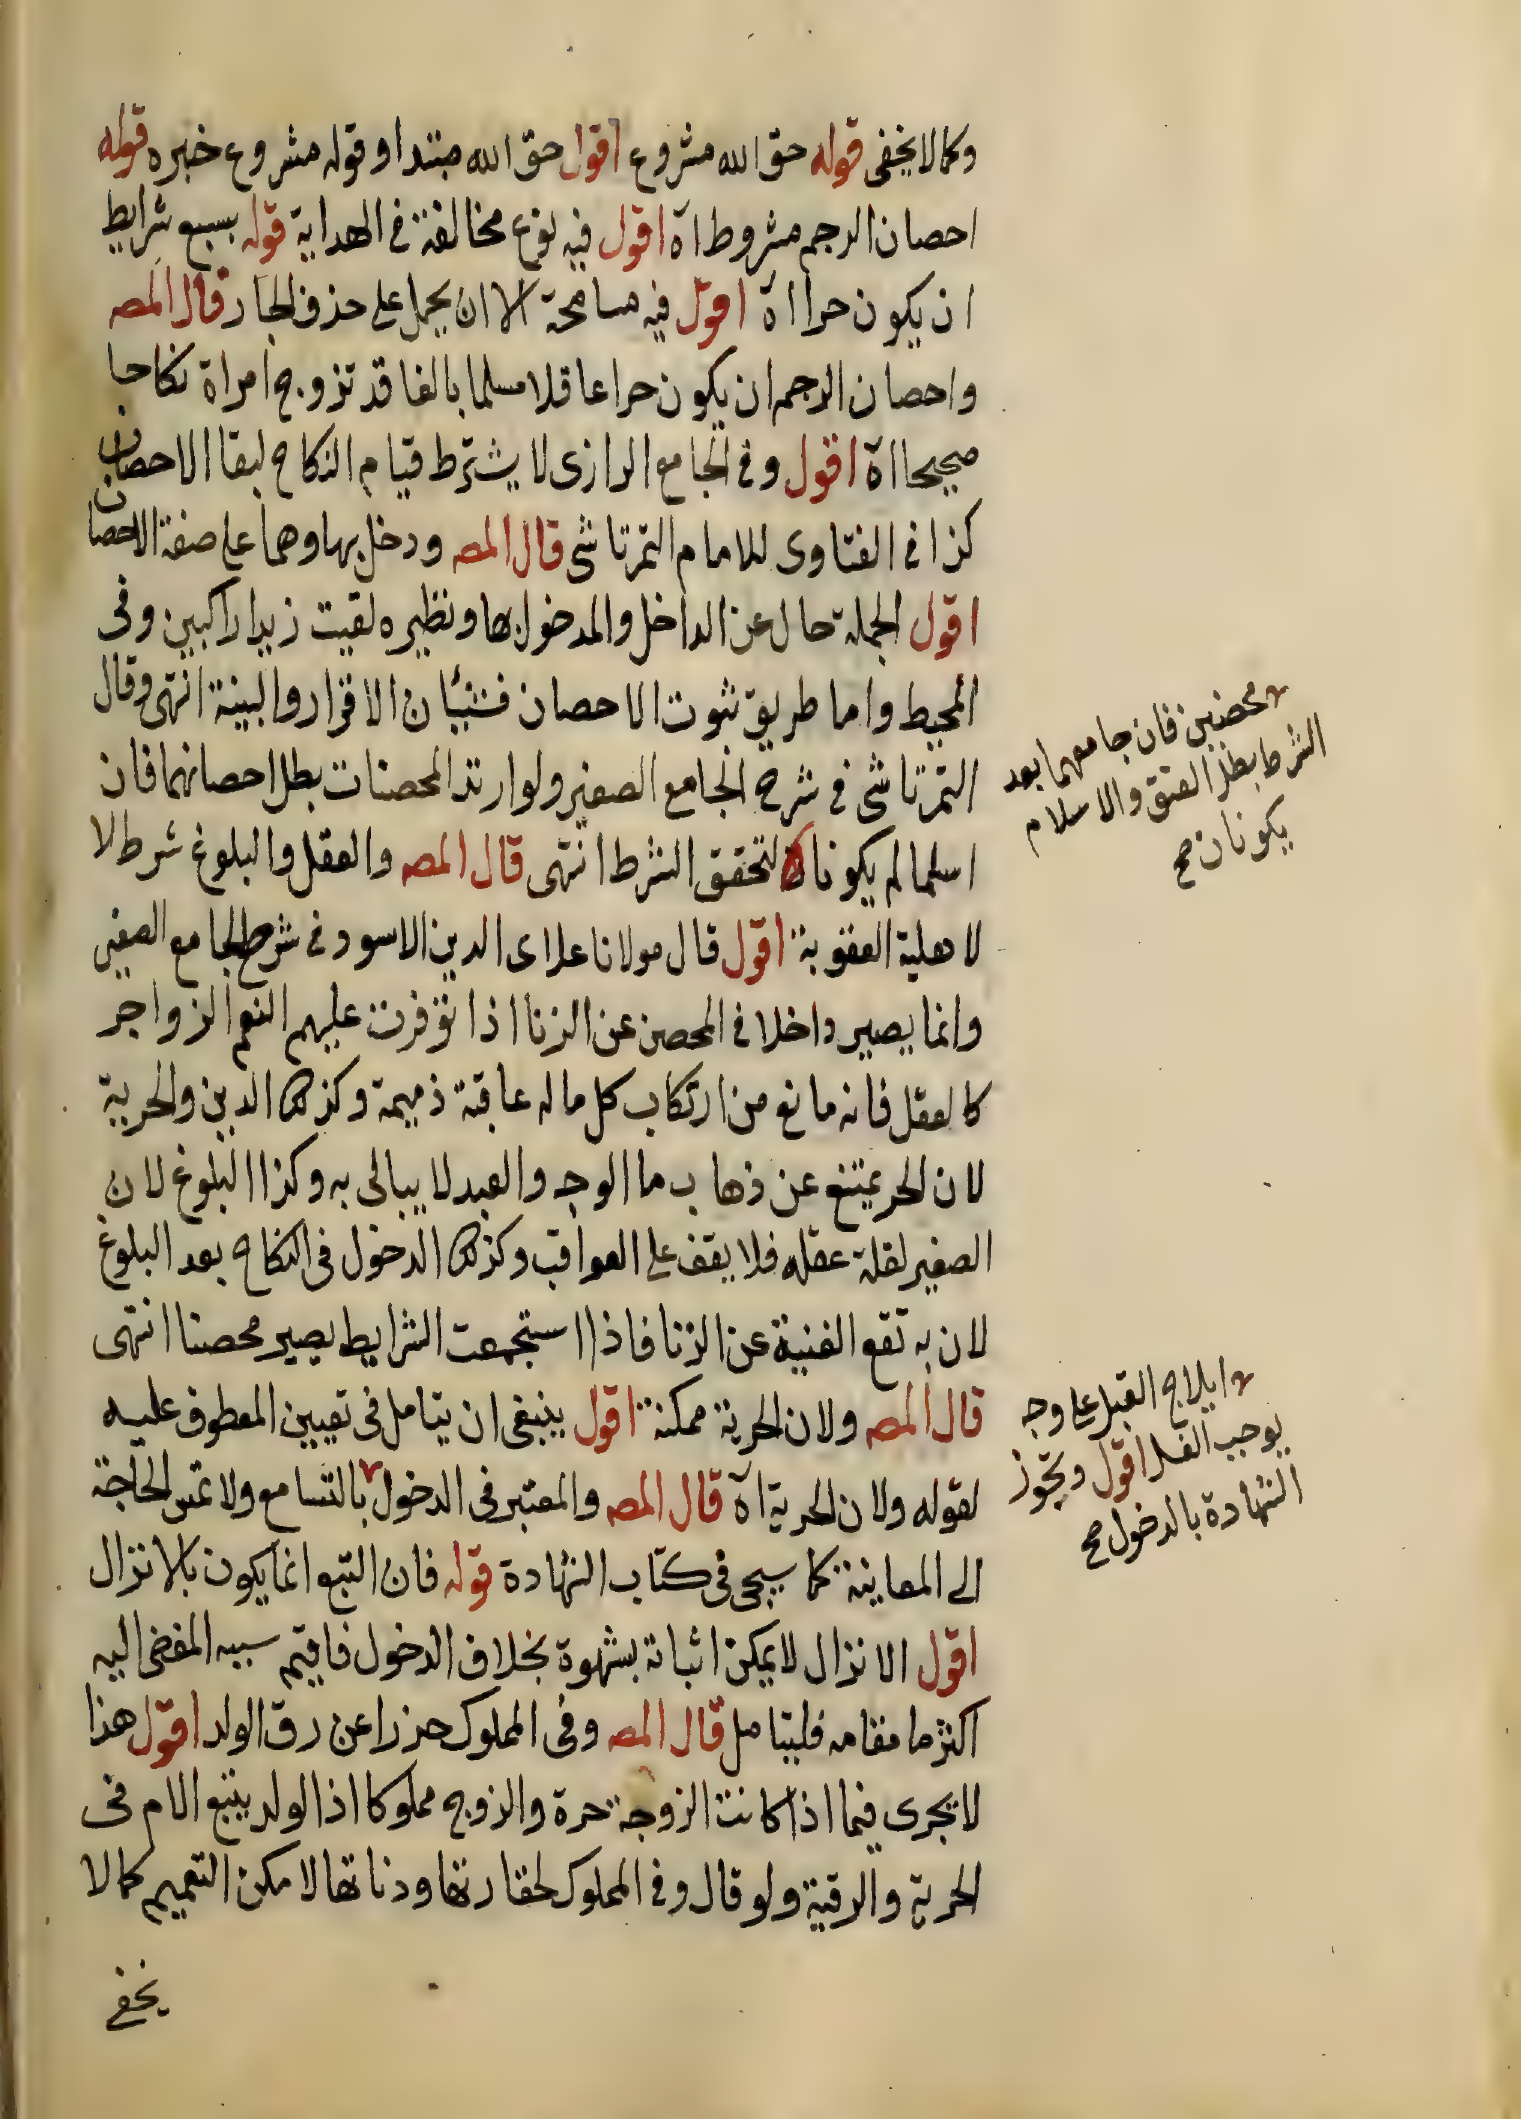 وكما لا يخفى قوله حق الله مشروع اقول حق الله مبتدا وقوله مشروع خبره قوله
احصان الرجم مشروط اه اقول فيه نوع مخالفة فى الهداية قوله بسبع شرايط
ان يكون حرا اه اقول فيه مسامحة الا ان يحمل على حذف الجار قال المصه
واحصان الرجم ان يكون حرا عاقلا مسلما بالغا قد تزوج امراة نكاحا
صحيحا اه اقول وفى الجامع الرازى لا يشترط قيام النكاح لبقا الاحصان
كزا فى الفتاوى للامام التمرتاشى قال المصه ودخل بها وهما على صفة الاحصان
اقول الجملة حال عن الداخل والمدخول بها ونظيره لقيت زيدا راكبين وفى
المحيط واما طريق ثبوت الاحصان فشيئان الاقرار والبينة انتهى وقال
التمرتاشى فى شرح الجامع الصغير ولو ارتد المحصنات بطل احصانهما فان
اسلما لم يكونا لتحقق الشرط انتهى قال المصه والعقل والبلوغ شرط لا
لاهلية العقوبة اقول قال مولانا علاى الدين الاسود فى شرح الجامع الصغير
وانما يصير داخلا فى المحصن عن الزنا اذا توفرت عليهم النعم الزواجر
كالعقل فانه مانع من ارتكاب كل ماله عاقبة ذميمة وكزلك الدين والحرية
لان الحر يمتنع عن ذهاب ما الوجه والعبد لا يبالى به وكزا البلوغ لان
الصغير لقلة عقله فلا يقف على العواقب وكزلك الدخول فى النكاح بعد البلوغ
لان به تقع الغنية عن الزنا فاذا استجمعت الشرايط يصير محصنا انتهى
قال المصه ولان الحرية ممكنة اقول ينبغى ان يتامل فى تعيين المعطوف عليه
لقوله ولان الحرية اه قال المصه والمعتبر فى الدخول بالتسامع ولا تمس الحاجة
الى المعاينة كما سيجى فى كتاب الشهادة قوله فان الشبع انما يكون بالانزال
اقول الانزال لا يمكن اثباته بشهوة بخلاف الدخول فاقيم سببه المفضى اليه
اكثر ما مقامه فليتامل قال المصه وفى المملوك حزرا عن رق الولد اقول هذا
لا يجرى فيما اذا كانت الزوجة حرة والزوج مملوكا اذ الولد يتبع الام فى
الحرية والرقية ولو قال وفى المملوك لحقارتها ودناتها لامكن التعميم كما لا
يخفى
محصنين فان جامعهما بعد
الشرط بطل العتق والاسلام
يكونان صح
ايلاج القبل على وجه
يوجب الغسل اقول ويجوز
الشهادة بالدخول صح